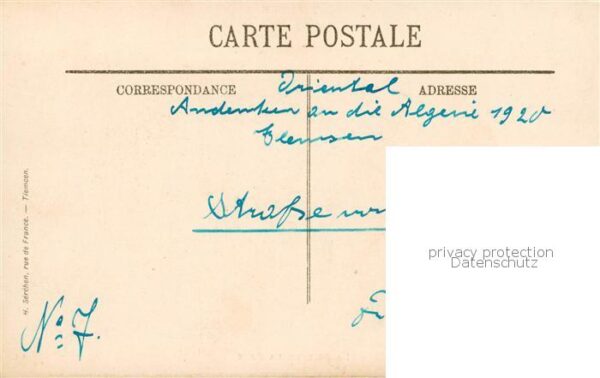 CARTE POSTALE
CORRESPONDANCE
ADRESSE
Oriental
Andenken an die Algerie 1920
Tlemsen
Straße
No. 7.
H. Séréhen, rue de France. — Tlemcen.
privacy protection
Datenschutz